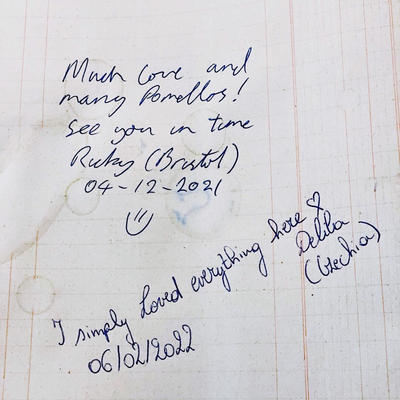 Much love and
many Pomellos!
See you in time
Ricky (Bristol)
04-12-2021
I simply loved everything here ♡
Delila
(Czechia)
06/02/2022